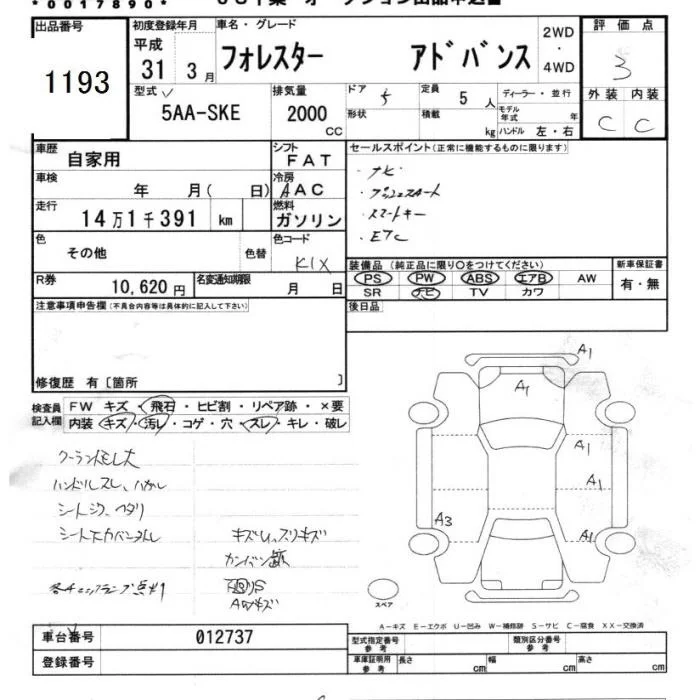 *0017890*
出品番号
1193
初度登録年月
平成
31 3月
車名・グレード
フォレスター アドバンス
2WD
・
4WD
評価点
3
型式
5AA-SKE
排気量
2000
CC
ドア
5
形状
定員
5人
積載
kg
ディーラー・並行
モデル年式 年
ハンドル 左・右
外装 内装
C C
車歴
自家用
シフト
FAT
車検
年 月( 日)
冷房
AAC
走行
14万1千391 km
燃料
ガソリン
色
その他
色替
色コード
K1X
R券
10,620円
名変通知期限
月 日
セールスポイント(正常に機能するものに限ります)
・ナビ
・プッシュスタート
・スマートキー
・ETC
装備品(純正品に限り○をつけてください)
PS PW ABS エアB AW
SR ナビ TV カワ
新車保証書
有・無
後日品
注意事項申告欄(不具合内容等は具体的に記入して下さい)
修復歴 有〔箇所 〕
検査員記入欄
FW キズ・飛石・ヒビ割・リペア跡・×要
内装 キズ・汚レ・コゲ・穴・スレ・キレ・破レ
ハンドルスレ、ハガレ
キズ
A1
A1
A1
A1
A3
A1
スペア
A-キズ E-エクボ U-凹み W-補修跡 S-サビ C-腐食 XX-交換済
車台番号
012737
登録番号
型式指定番号
参考
類別区分番号
参考
車庫証明用
参考
長さ cm
幅 cm
高さ cm